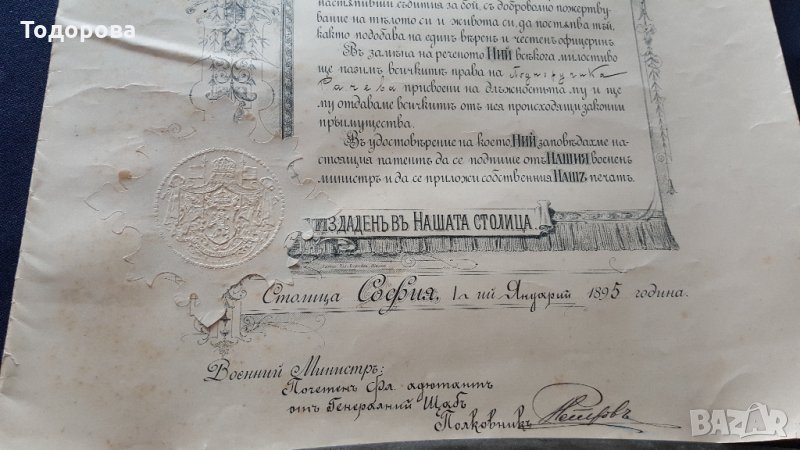 Тодорова
настѫпивши събития за бой, съ доброволно пожертву-
вание на тѣлото си и живота си, да постѫпва тъй,
както подобава на единъ вѣренъ и честенъ офицеринъ.
Въ замѣна на реченото НИЙ всѣкога милостиво
ще пазимъ всичкитѣ права на Подпоручика
Рачева присвоени на длъжностьта му и ще
му отдаваме всичкитѣ отъ нея происходящи законни
прѣимущества.
Въ удостовѣрение на което НИЙ заповѣдахме на-
стоящия патентъ да се подпише отъ НАШИЯ военен
министръ и да се приложи собственния НАШЪ печатъ.
ИЗДАДЕНЪ ВЪ НАШАТА СТОЛИЦА.
Столица София, 1-ий Януарий 1895 година.
Военний Министръ:
Почетенъ Фл. адютантъ
отъ Генералний Щабъ
Полковникъ Петровъ
BAZAR